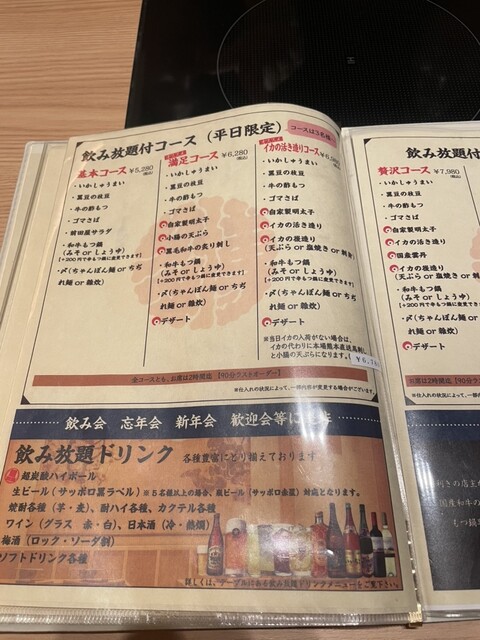 飲み放題付コース（平日限定）
コースは3名様
基本コース ¥5,280(税込)
・いかしゅうまい
・黒豆の枝豆
・牛の酢もつ
・ゴマさば
・前田屋サラダ
・和牛もつ鍋
(みそ or しょうゆ)
【+200円で辛もつ鍋に変更できます】
・〆(ちゃんぽん麺 or ちぢ
れ麺 or 雑炊)
満足コース ¥6,280(税込)
・いかしゅうまい
・黒豆の枝豆
・牛の酢もつ
・ゴマさば
自家製明太子
小腸の天ぷら
黒毛和牛の炙り刺し
・和牛もつ鍋
(みそ or しょうゆ)
【+200円で辛もつ鍋に変更できます】
・〆(ちゃんぽん麺 or ちぢ
れ麺 or 雑炊)
デザート
イカの活き造りコース
・いかしゅうまい
・黒豆の枝豆
・牛の酢もつ
・ゴマさば
自家製明太子
イカの活き造り
イカの後造り
(天ぷら or 塩焼き or 刺身)
・和牛もつ鍋
(みそ or しょうゆ)
【+200円で辛もつ鍋に変更できます】
・〆(ちゃんぽん麺 or ちぢ
れ麺 or 雑炊)
デザート
※当日イカの入荷がない場合は、
イカの代わりに本場熊本産送馬刺し
と小腸の天ぷらになります。
全コースとも、お席は2時間迄【90分ラストオーダー】
※仕入れの状況によって、一部内容が変更する場合がございます。
飲み会 忘年会 新年会 歓迎会等に是非
飲み放題ドリンク 各種豊富にとり揃えております
超炭酸ハイボール
生ビール（サッポロ黒ラベル）※5名様以上の場合、瓶ビール（サッポロ赤星）対応となります。
焼酎各種（芋・麦）、酎ハイ各種、カクテル各種
ワイン（グラス 赤・白）、日本酒（冷・熱燗）
梅酒（ロック・ソーダ割）
ソフトドリンク各種
詳しくは、テーブルにある飲み放題ドリンクメニューをご覧下さい。
飲み放題付
贅沢コース ¥7,980(税込)
・いかしゅうまい
・黒豆の枝豆
・牛の酢もつ
・ゴマさば
自家製明太子
イカの活き造り
国産雲丹
イカの後造り
(天ぷら or 塩焼き or
・和牛もつ鍋
(みそ or しょうゆ)
【+200円で辛もつ鍋に変更できます】
・〆(ちゃんぽん麺 or
れ麺 or 雑炊)
デザート
※お席は2時間迄【90分
※仕入れの状況によって、
利きの店主が
国産和牛の
もつ鍋